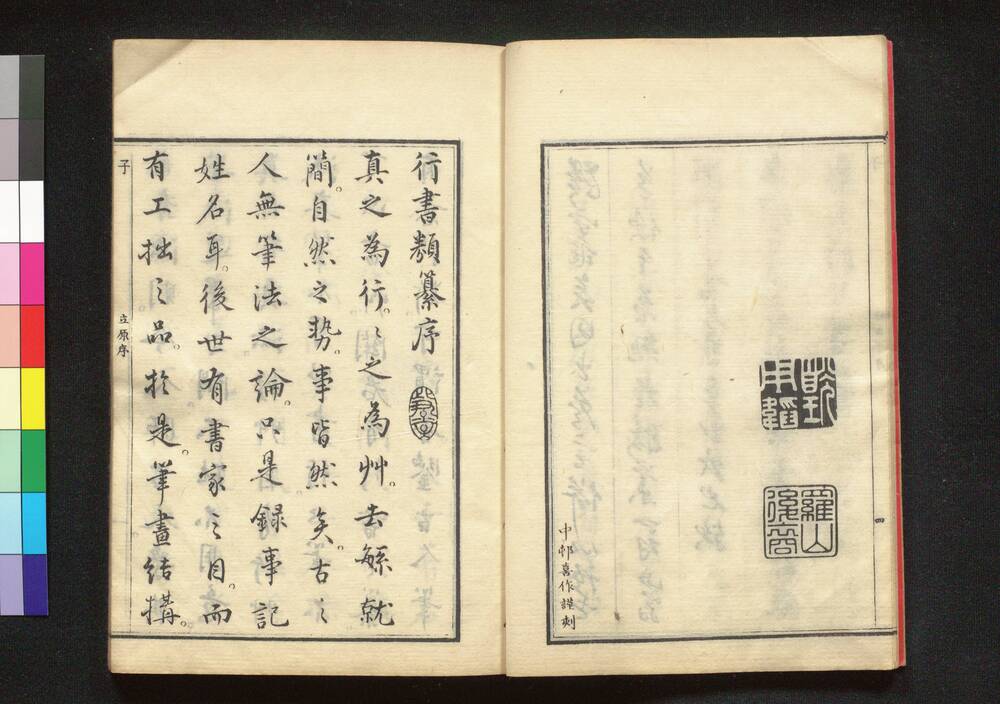 羅山
後裔
中邨喜作謹刻
四
行書類纂序
真之為行。〻之為艸。去緐就
簡。自然之勢。事皆然矣。古之
人無筆法之論。只是録事記
姓名耳。後世有書家之目。而
有工拙之品。於是。筆畫結構。
子
立原序